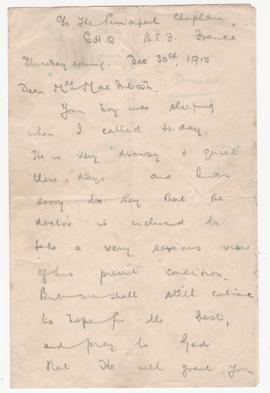 c/o The Principal Chaplain,
G.H.Q. B.E.F. France
Thursday evening. Dec 30th, 1915
Dear Mrs MacIntosh,
Your boy was sleeping
when I called to-day.
He is very drowsy & quiet
these days and I am
sorry to say that the
doctor is inclined to
take a very serious view
of his present condition.
But we shall still continue
to hope for the best,
and pray to God
that He will grant you